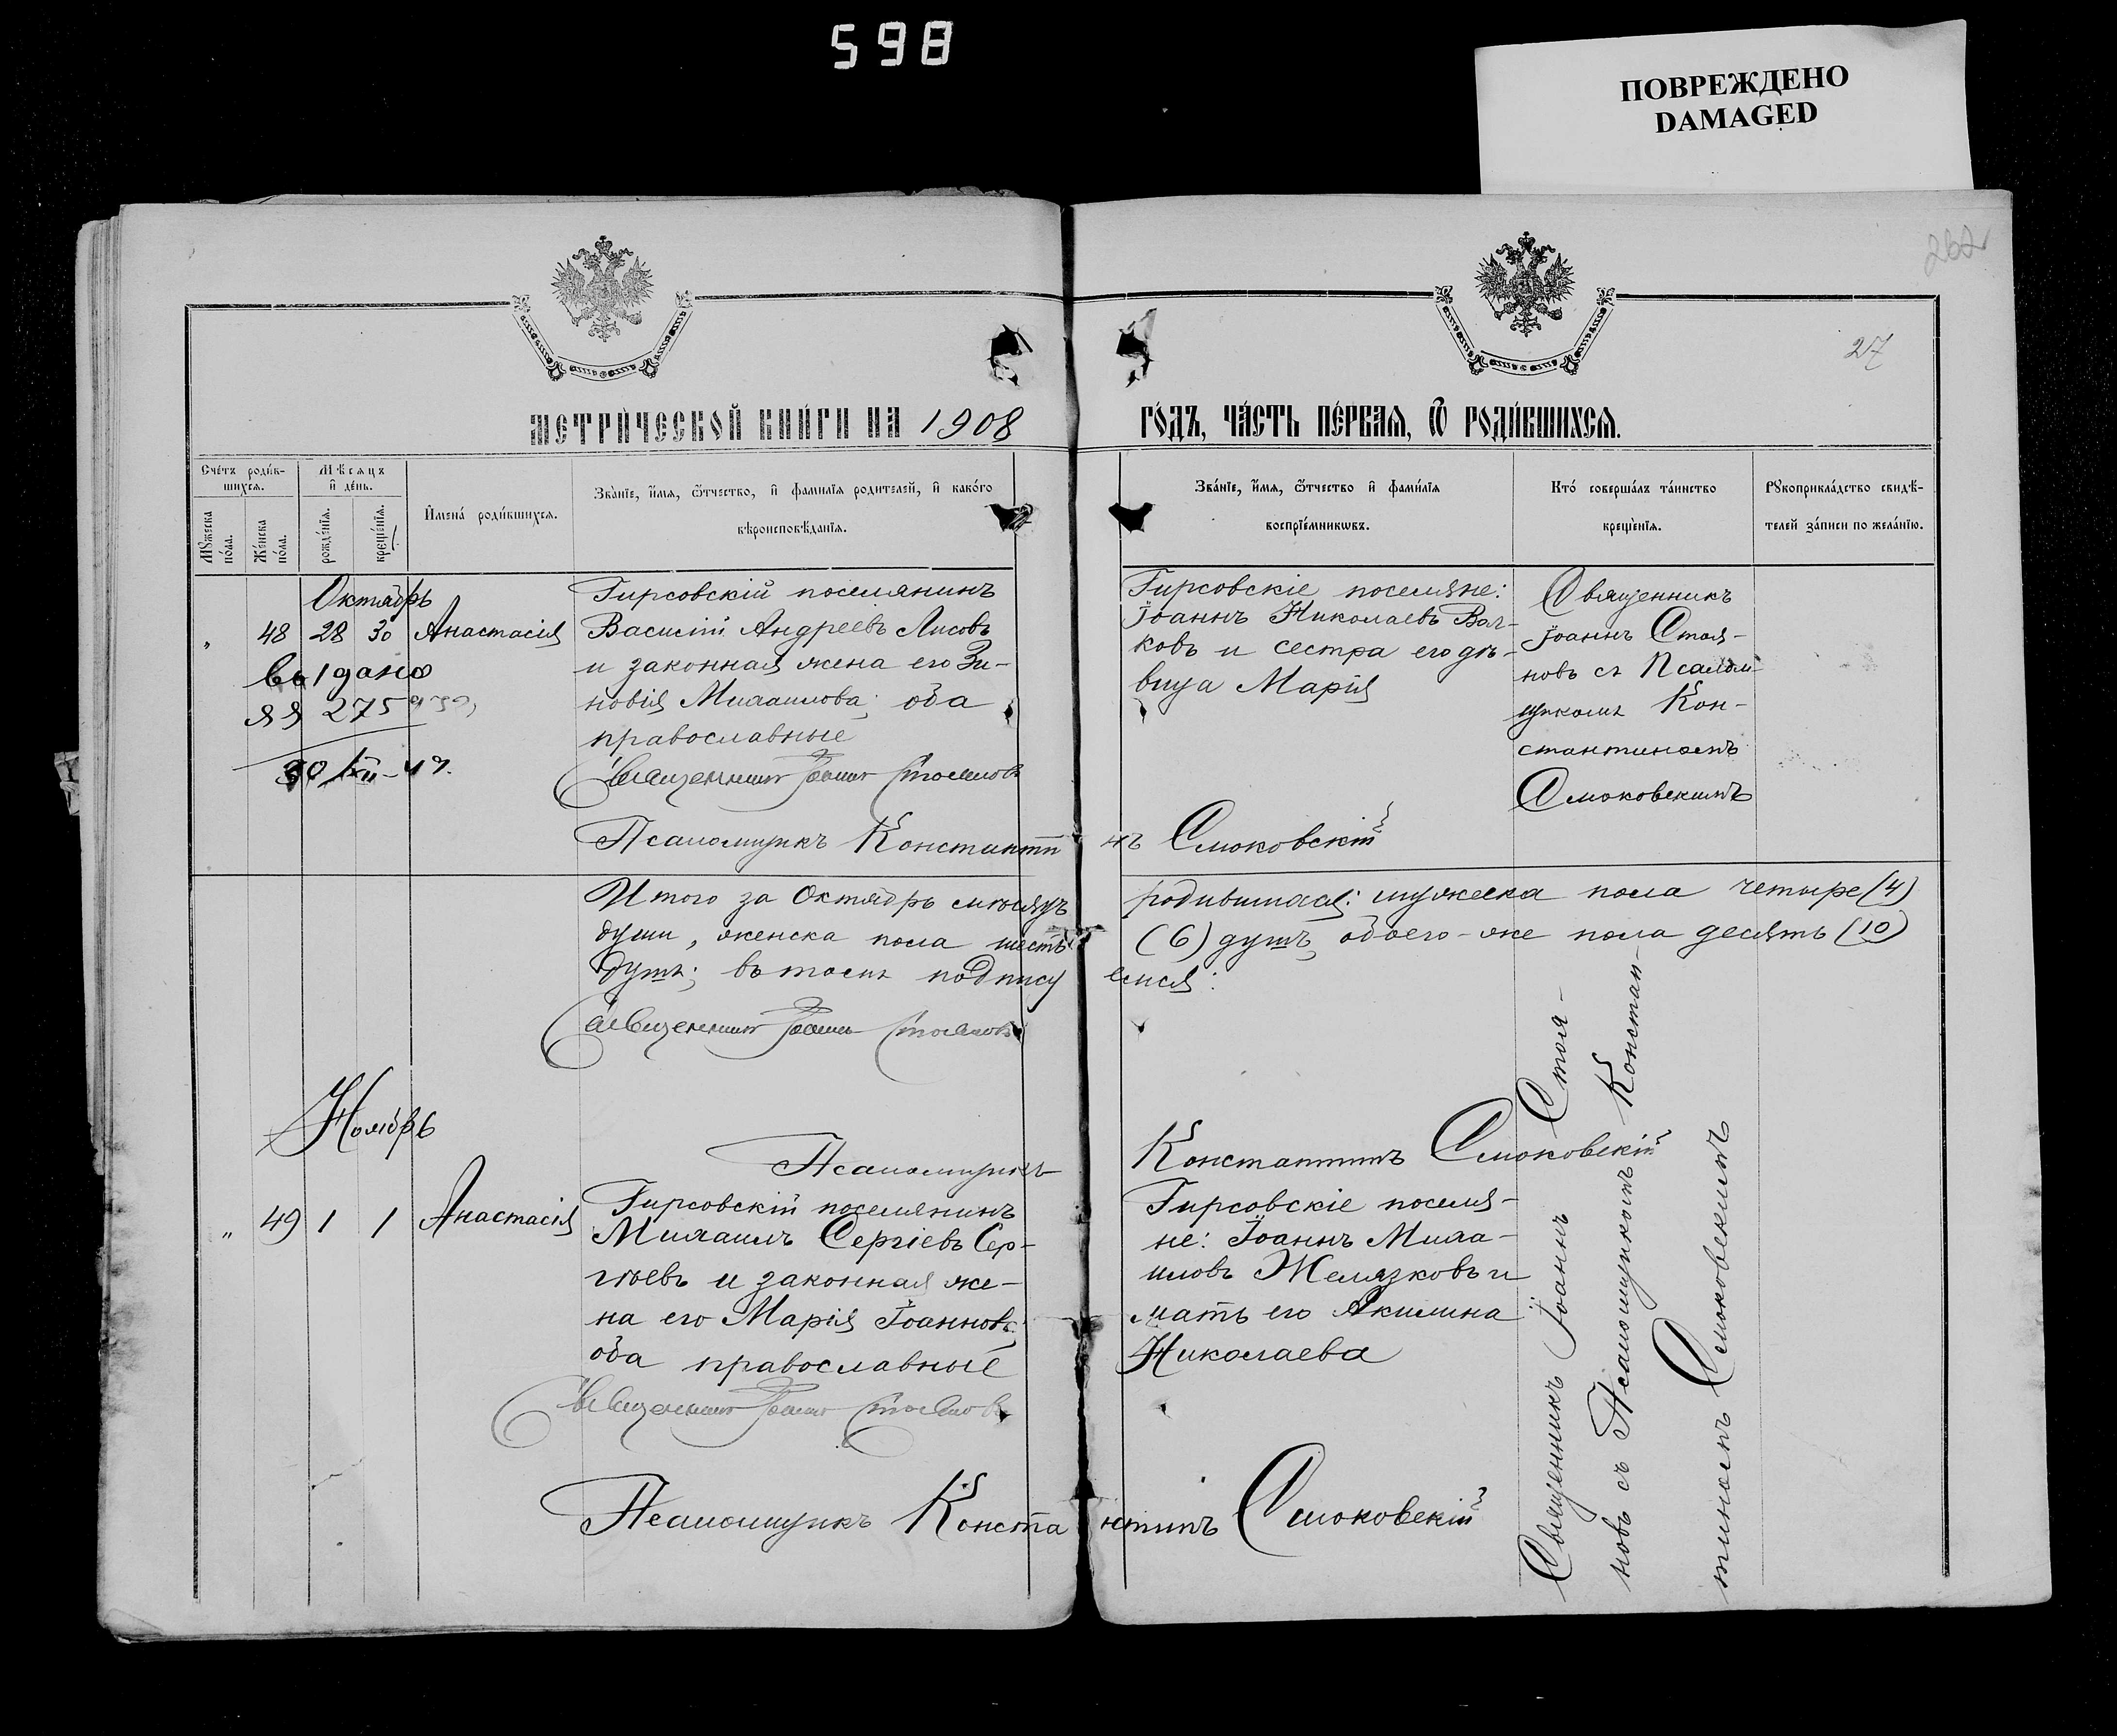 598
ПОВРЕЖДЕНО
DAMAGED
262
27
МЕТРИ́ЧЕСКОЙ КНИ́ГИ НА 1908
ГО́ДЪ, ЧА́СТЬ ПЕ́РВАЯ, Ѿ РОДИ́ВШИХСЯ.
Сче́тъ роди́в-
шихся.
Мѣсяцъ
и де́нь.
Му́жеска
по́ла.
Же́нска
по́ла.
рожде́нїя.
креще́нїя.
Имена́ роди́вшихся.
Зва́нїе, и́мя, ѻ́тчество, и фами́лїя роди́телей, и како́го
вѣроисповѣ́данїя.
Зва́нїе, и́мя, ѻ́тчество и фами́лїя
воспрїе́мникωвъ.
Кто́ соверша́лъ та́инство
креще́нїя.
Рукоприкла́дство свидѣ́-
телей за́писи по жела́нїю.
Октябрь
„ 48 28 30 Анастасія
выдано
275
Гирсовскій поселянинъ
Василій Андреевъ Лисовъ
и законная жена его Зи-
новія Михаилова; оба
православные
Священникъ Іоаннъ Стояновъ
Гирсовскіе поселяне:
Іоаннъ Николаевъ Вол-
ковъ и сестра его дѣ-
вица Марія
Священникъ
Іоаннъ Стоя-
новъ съ Псалом-
щикомъ Кон-
стантиномъ
Смоковскимъ
Псаломщикъ Константинъ Смоковскій
Итого за Октябрь мѣсяцъ родившихся: мужеска пола четыре (4)
души, женска пола шесть (6) душъ, обоего-же пола десять (10)
душъ; въ томъ подписуемся:
Священникъ Іоаннъ Стояновъ
Ноябрь
Псаломщикъ Константинъ Смоковскій
„ 49 1 1 Анастасія
Гирсовскій поселянинъ
Михаилъ Сергіевъ Сер-
гѣевъ и законная же-
на его Марія Іоаннова;
оба православные
Священникъ Іоаннъ Стояновъ
Гирсовскіе поселя-
не: Іоаннъ Миха-
иловъ Желязковъ и
мать его Акилина
Николаева
Священникъ Іоаннъ Стоя-
новъ съ Псаломщикомъ Констан-
тиномъ Смоковскимъ
Псаломщикъ Константинъ Смоковскій